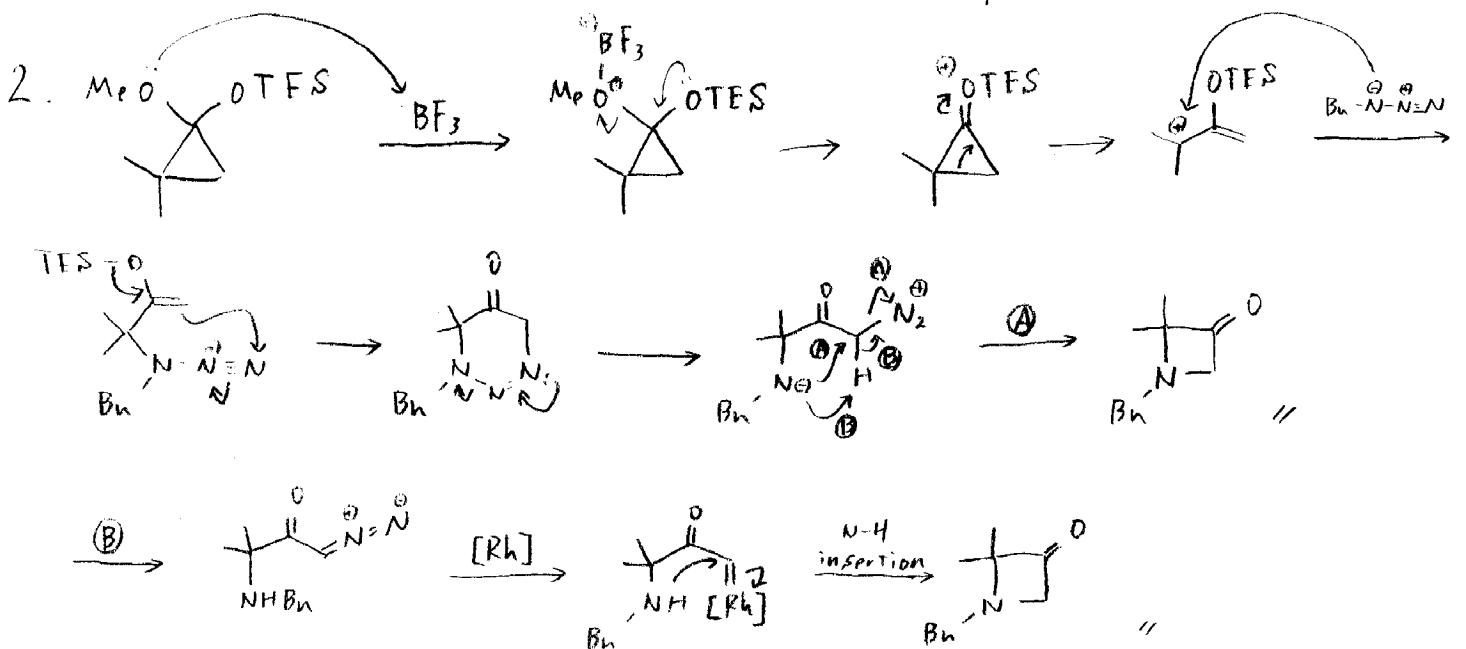 2. MeO OTES BF3 ⊖BF3 MeO⊕ OTES ⊕OTES OTES ⊕ Bn-N⊖-N⊕≡N
TES-O N-N⊕≡N Bn O N N N Bn O N2⊕ Ⓐ Ⓐ Ⓑ H N⊖ Ⓑ Bn Ⓐ O N Bn //
Ⓑ O N⊕=N⊖ NHBn [Rh] O NH [Rh] Bn N-H insertion O N Bn //